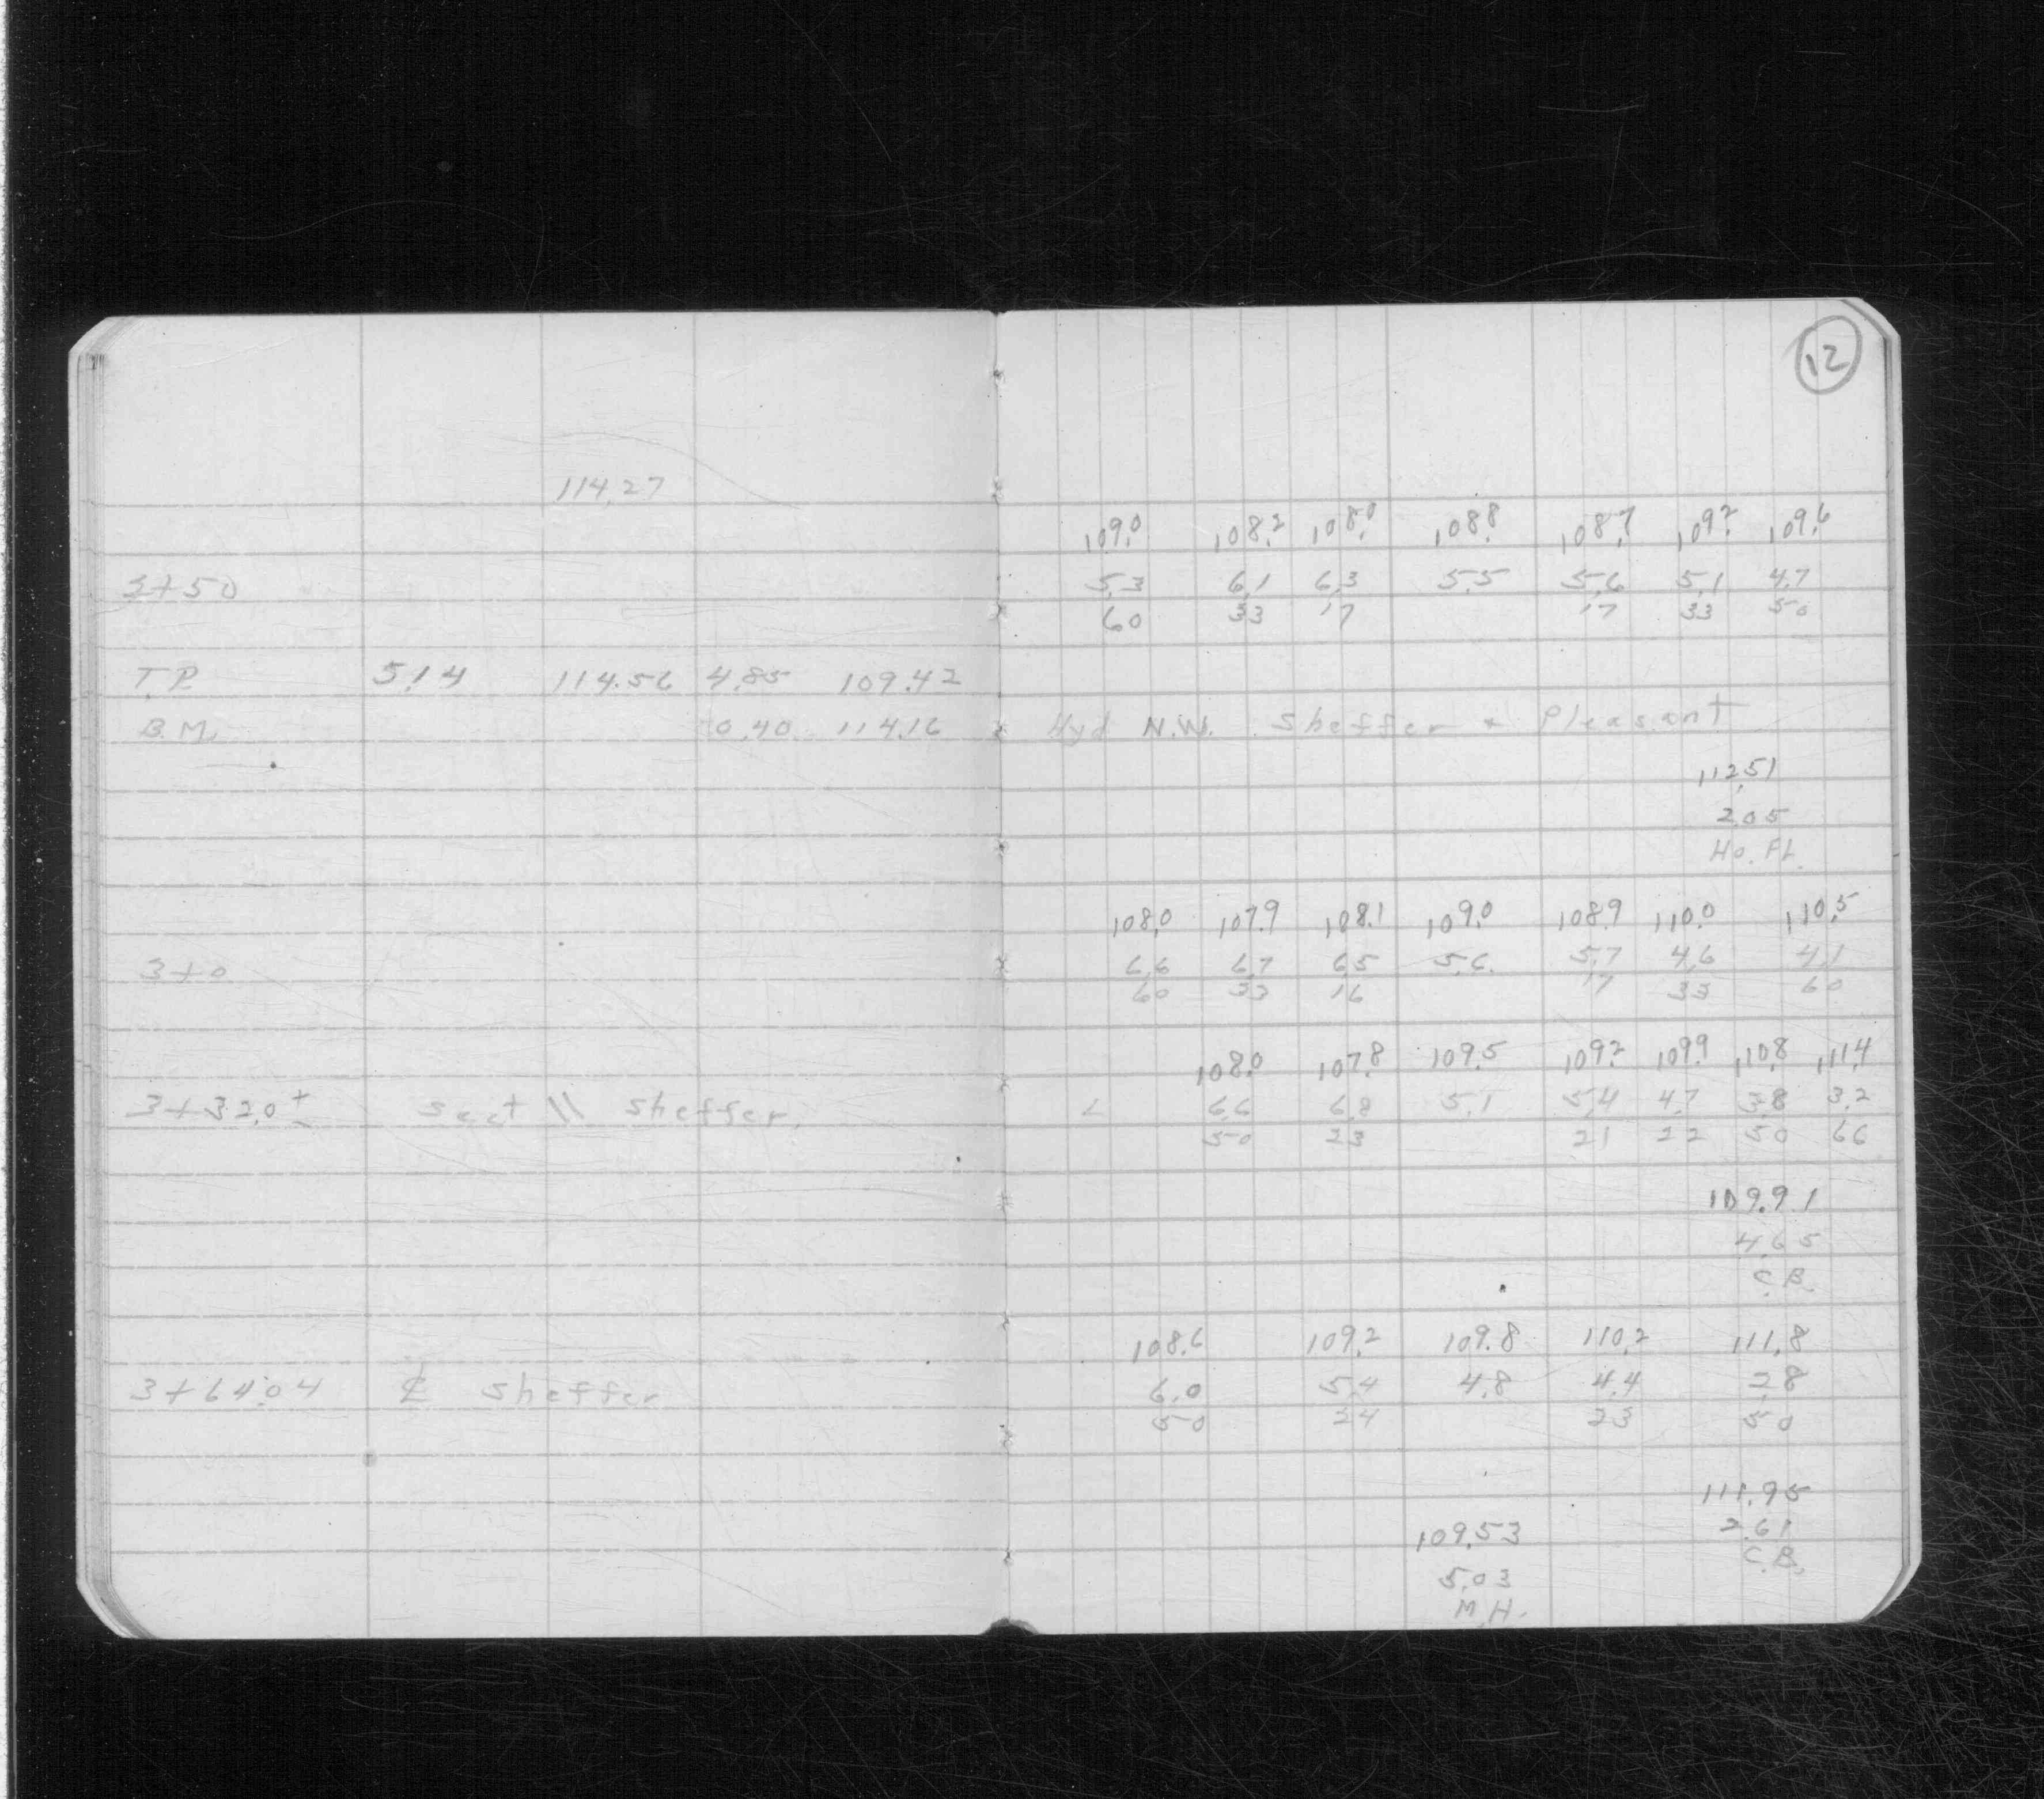 12
114.27
109.0 108.2 108.0 108.8 108.7 109.2 109.6
3+50 5.3 6.1 6.3 5.5 5.6 5.1 4.7
60 33 17 17 33 50
T.P. 5.14 114.56 4.85 109.42
B.M. 0.40 114.16 Hyd N.W. Sheffer + Pleasant
112.51
2.05
Ho. Fl.
108.0 107.9 108.1 109.0 108.9 110.0 110.5
3+0 6.6 6.7 6.5 5.6 5.7 4.6 4.1
60 33 16 17 33 60
108.0 107.8 109.5 109.2 109.9 110.8 111.4
3+32.0± sect \\ Sheffer. L 6.6 6.8 5.1 5.4 4.7 3.8 3.2
50 23 21 22 50 66
109.91
4.65
C.B.
108.6 109.2 109.8 110.2 111.8
3+64.04 ℄ Sheffer 6.0 5.4 4.8 4.4 2.8
50 24 23 50
111.95
109.53 2.61
C.B.
5.03
M.H.